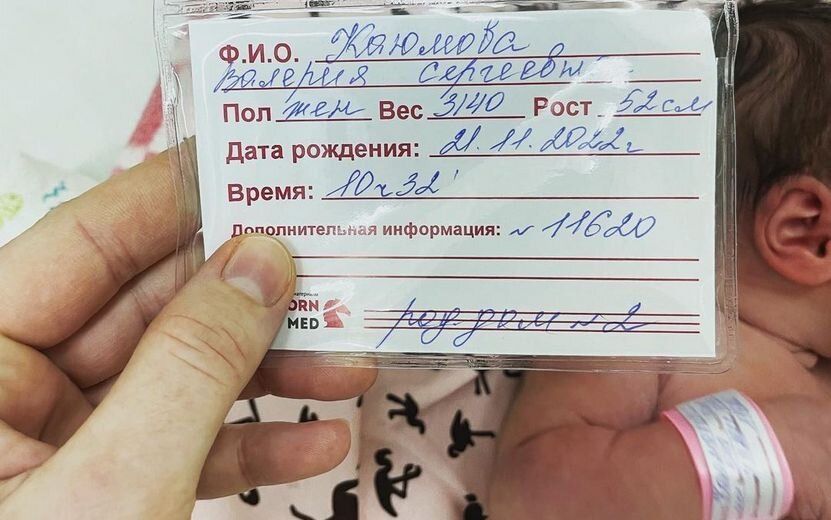 Ф.И.О. Каюмова
Валерия Сергеевн
Пол жен Вес 3140 Рост 52см
Дата рождения: 21.11.2022г
Время: 10ч32'
Дополнительная информация: N 11620
ORN
MED
род.дом N 2